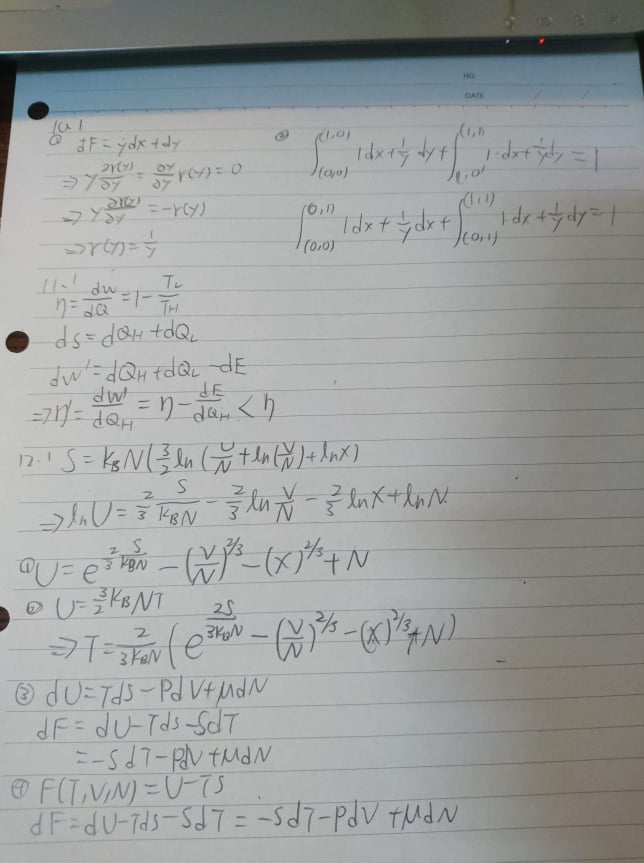 NO.
DATE
10.1
① dF = ydx + dy
⇒ y ∂r(y)/∂y = ∂y/∂y r(y) = 0
⇒ y ∂r(y)/∂y = -r(y)
⇒ r(y) = 1/y
② ∫_(0,0)^(1,0) 1dx + 1/y dy + ∫_(1,0)^(1,1) 1·dx + 1/y dy = 1
∫_(0,0)^(0,1) 1dx + 1/y dx + ∫_(0,1)^(1,1) 1·dx + 1/y dy = 1
11.1
η = dw/dQ = 1 - T_L/T_H
ds = dQ_H + dQ_L
dw' = dQ_H + dQ_L - dE
⇒ η' = dw'/dQ_H = η - dE/dQ_H < η
12.1 S = k_B N (3/2 ln (U/N + ln(V/N) + ln X)
⇒ ln U = 2/3 S/(k_B N) - 2/3 ln V/N - 2/3 ln X + ln N.
① U = e^(2/3 S/(k_B N)) - (V/N)^(2/3) - (X)^(2/3) + N
② U = 3/2 k_B NT
⇒ T = 2/(3k_B N) (e^(2S/(3k_B N)) - (V/N)^(2/3) - (X)^(2/3) + N)
③ dU = Tds - PdV + μdN
dF = dU - Tds - SdT
= -SdT - PdV + μdN
④ F(T,V,N) = U - TS
dF = dU - Tds - SdT = -SdT - PdV + μdN